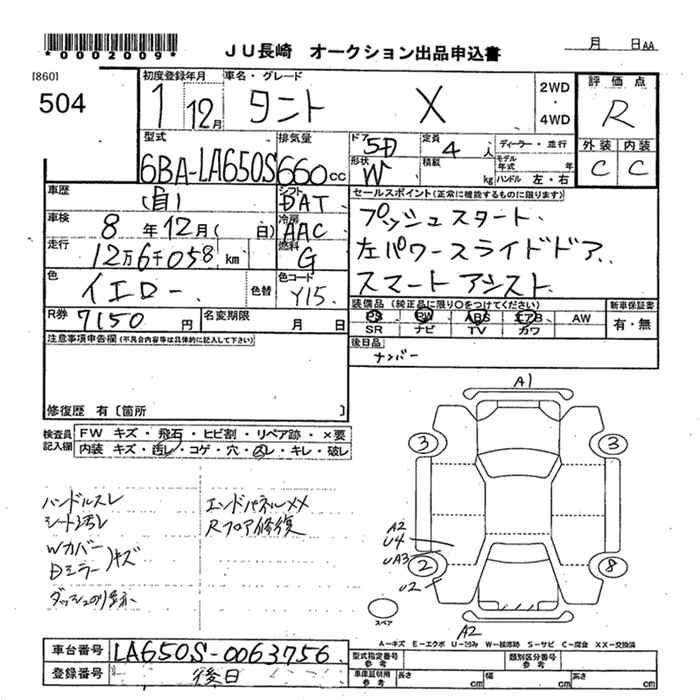 *0002009*
JU長崎 オークション出品申込書
月 日AA
[860]
504
初度登録年月 車名・グレード
1 12月 タント X
2WD・4WD
評価点
R
外装 内装
C C
型式 排気量
6BA-LA650S 660cc
ドア 5D 定員 4人
形状 W 積載 kg
ディーラー・並行
モデル年式 年
ハンドル 左・右
車歴 (自)
シフト DAT
車検 8年12月(日)
冷房 AAC
走行 12万6千058km
燃料 G
色 イエロー 色替
色コード Y15
R券 7150円
名変期限 月 日
セールスポイント(正常に機能するものに限ります)
プッシュスタート
左パワースライドドア
スマートアシスト
装備品(純正品に限り○をつけてください)
PS PW ABS エアB AW
SR ナビ TV カワ
新車保証書
有・無
後日品
ナンバー
注意事項申告欄(不具合内容等は具体的に記入して下さい)
修復歴 有〔箇所 〕
検査員記入欄
FW キズ・飛石・ヒビ割・リペア跡・×要
内装 キズ・汚レ・コゲ・穴・凹レ・キレ・破レ
ハンドルスレ
シート汚レ
Wカバー
Dミラー キズ
エンドパネルXX
Rフロア修復
A1
3 3
A2
U4
UA3
2 8
U2
A2
スペア
A-キズ E-エクボ U-凹み W-補修跡 S-サビ C-腐食 XX-交換済
車台番号 LA650S-0063756
登録番号 後日
型式指定番号 参考
類別区分番号 参考
車庫証明用 参考 長さ cm 幅 cm 高さ cm